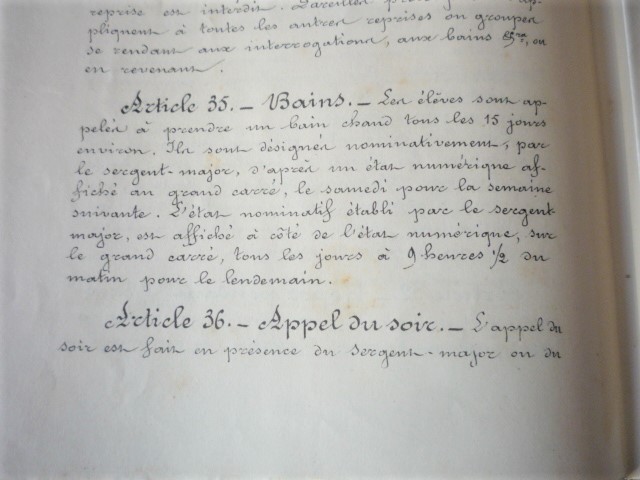 reprise est interdit. Pareilles
pliquent à toutes les autres reprises ou groupes
se rendant aux interrogations, aux bains &ra, ou
en revenant.
Article 35. — Bains. — Les élèves sont ap-
pelés à prendre un bain chaud tous les 15 jours
environ. Ils sont désignés nominativement, par
le sergent-major, d'après un état numérique af-
fiché au grand carré, le samedi pour la semaine
suivante. L'état nominatif établi par le sergent-
major, est affiché à côté de l'état numérique, sur
le grand carré, tous les jours à 9 heures 1/2 du
matin pour le lendemain.
Article 36. — Appel du soir. — L'appel du
soir est fait en présence du sergent-major ou du